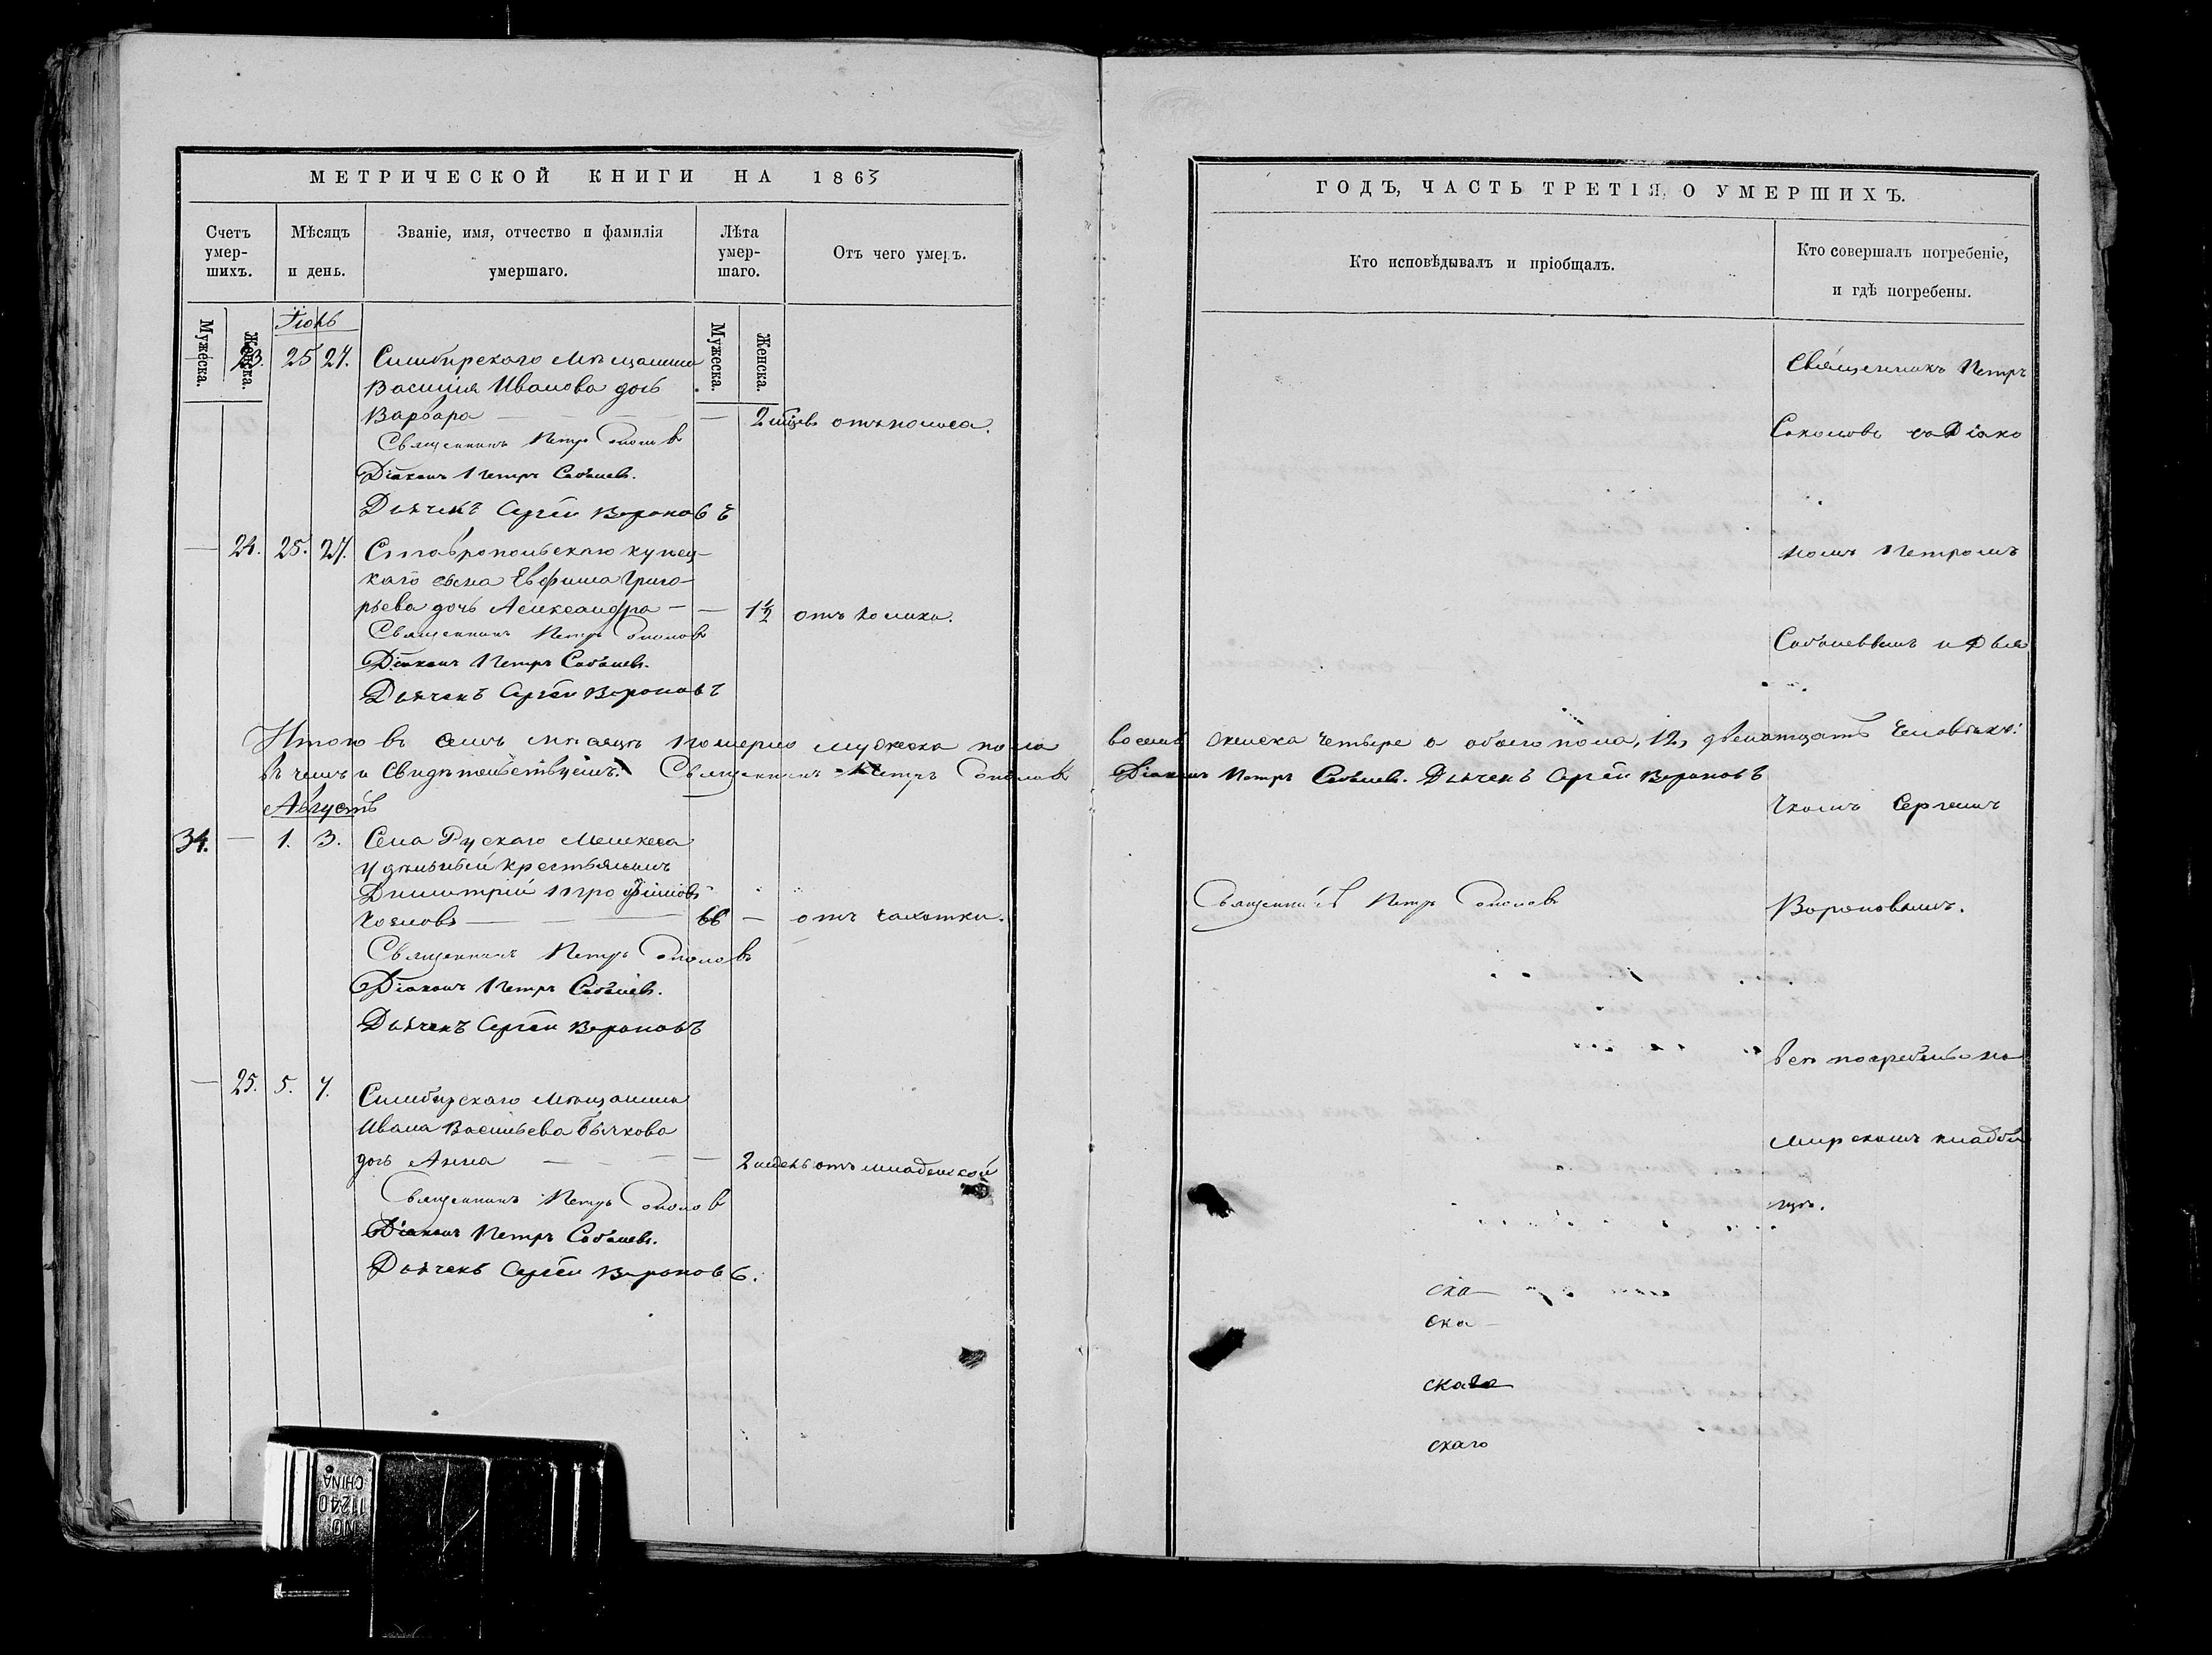 МЕТРИЧЕСКОЙ КНИГИ НА 1863
Счетъ умер-шихъ.
Мѣсяцъ и день.
Званіе, имя, отчество и фамилія умершаго.
Лѣта умер-шаго.
Отъ чего умеръ.
Мужеска.
Женска.
Мужеска.
Женска.
Іюль
23. 25 27. Симбирскаго мѣщанина
Василія Иванова дочь
Варвара — — 2 мѣсцв отъ поноса.
Священникъ Петръ Соколовъ
Діаконъ Петръ Соболевъ.
Дьячекъ Сергѣй Вороновъ
— 24. 25. 27. Ставропольскаго купец-
каго сына Евфима Григо-
рьева дочь Александра — — 1½ отъ колики.
Священникъ Петръ Соколовъ
Діаконъ Петръ Соболевъ.
Дьячекъ Сергѣй Вороновъ
Итого въ семъ мѣсяцѣ померло мужеска пола
въ чемъ и свидѣтельствуемъ. Священникъ Петръ Соколовъ
Августъ
34. — 1. 3. Села Рускаго Мелекеса
удѣльный крестьянинъ
Димитрій
66 — отъ чахотки.
Священникъ Петръ Соколовъ
Діаконъ Петръ Соболевъ.
Дьячекъ Сергѣй Вороновъ
— 25. 5. 7. Симбирскаго мѣщанина
Ивана Васильева Бычкова
дочь Анна — — 2 недѣль отъ младенской
Священникъ Петръ Соколовъ
Діаконъ Петръ Соболевъ.
Дьячекъ Сергѣй Вороновъ.
NO. 11240
CHINA
ГОДЪ, ЧАСТЬ ТРЕТІЯ, О УМЕРШИХЪ.
Кто исповѣдывалъ и пріобщалъ.
Кто совершалъ погребеніе, и гдѣ погребены.
Священникъ Петръ
Соколовъ съ Діако
номъ Петромъ
Соболевымъ и Дья
восемь женска четыре а обоего пола, 12, двенатцать человѣкъ:
Діаконъ Петръ Соболев. Дьячекъ Сергѣй Вороновъ
чкомъ Сергеемъ
Священникъ Петръ Соколовъ
Вороновымъ.
всѣ погребены на
мирскомъ кладби
щѣ.
ска
ска
скаго
скаго